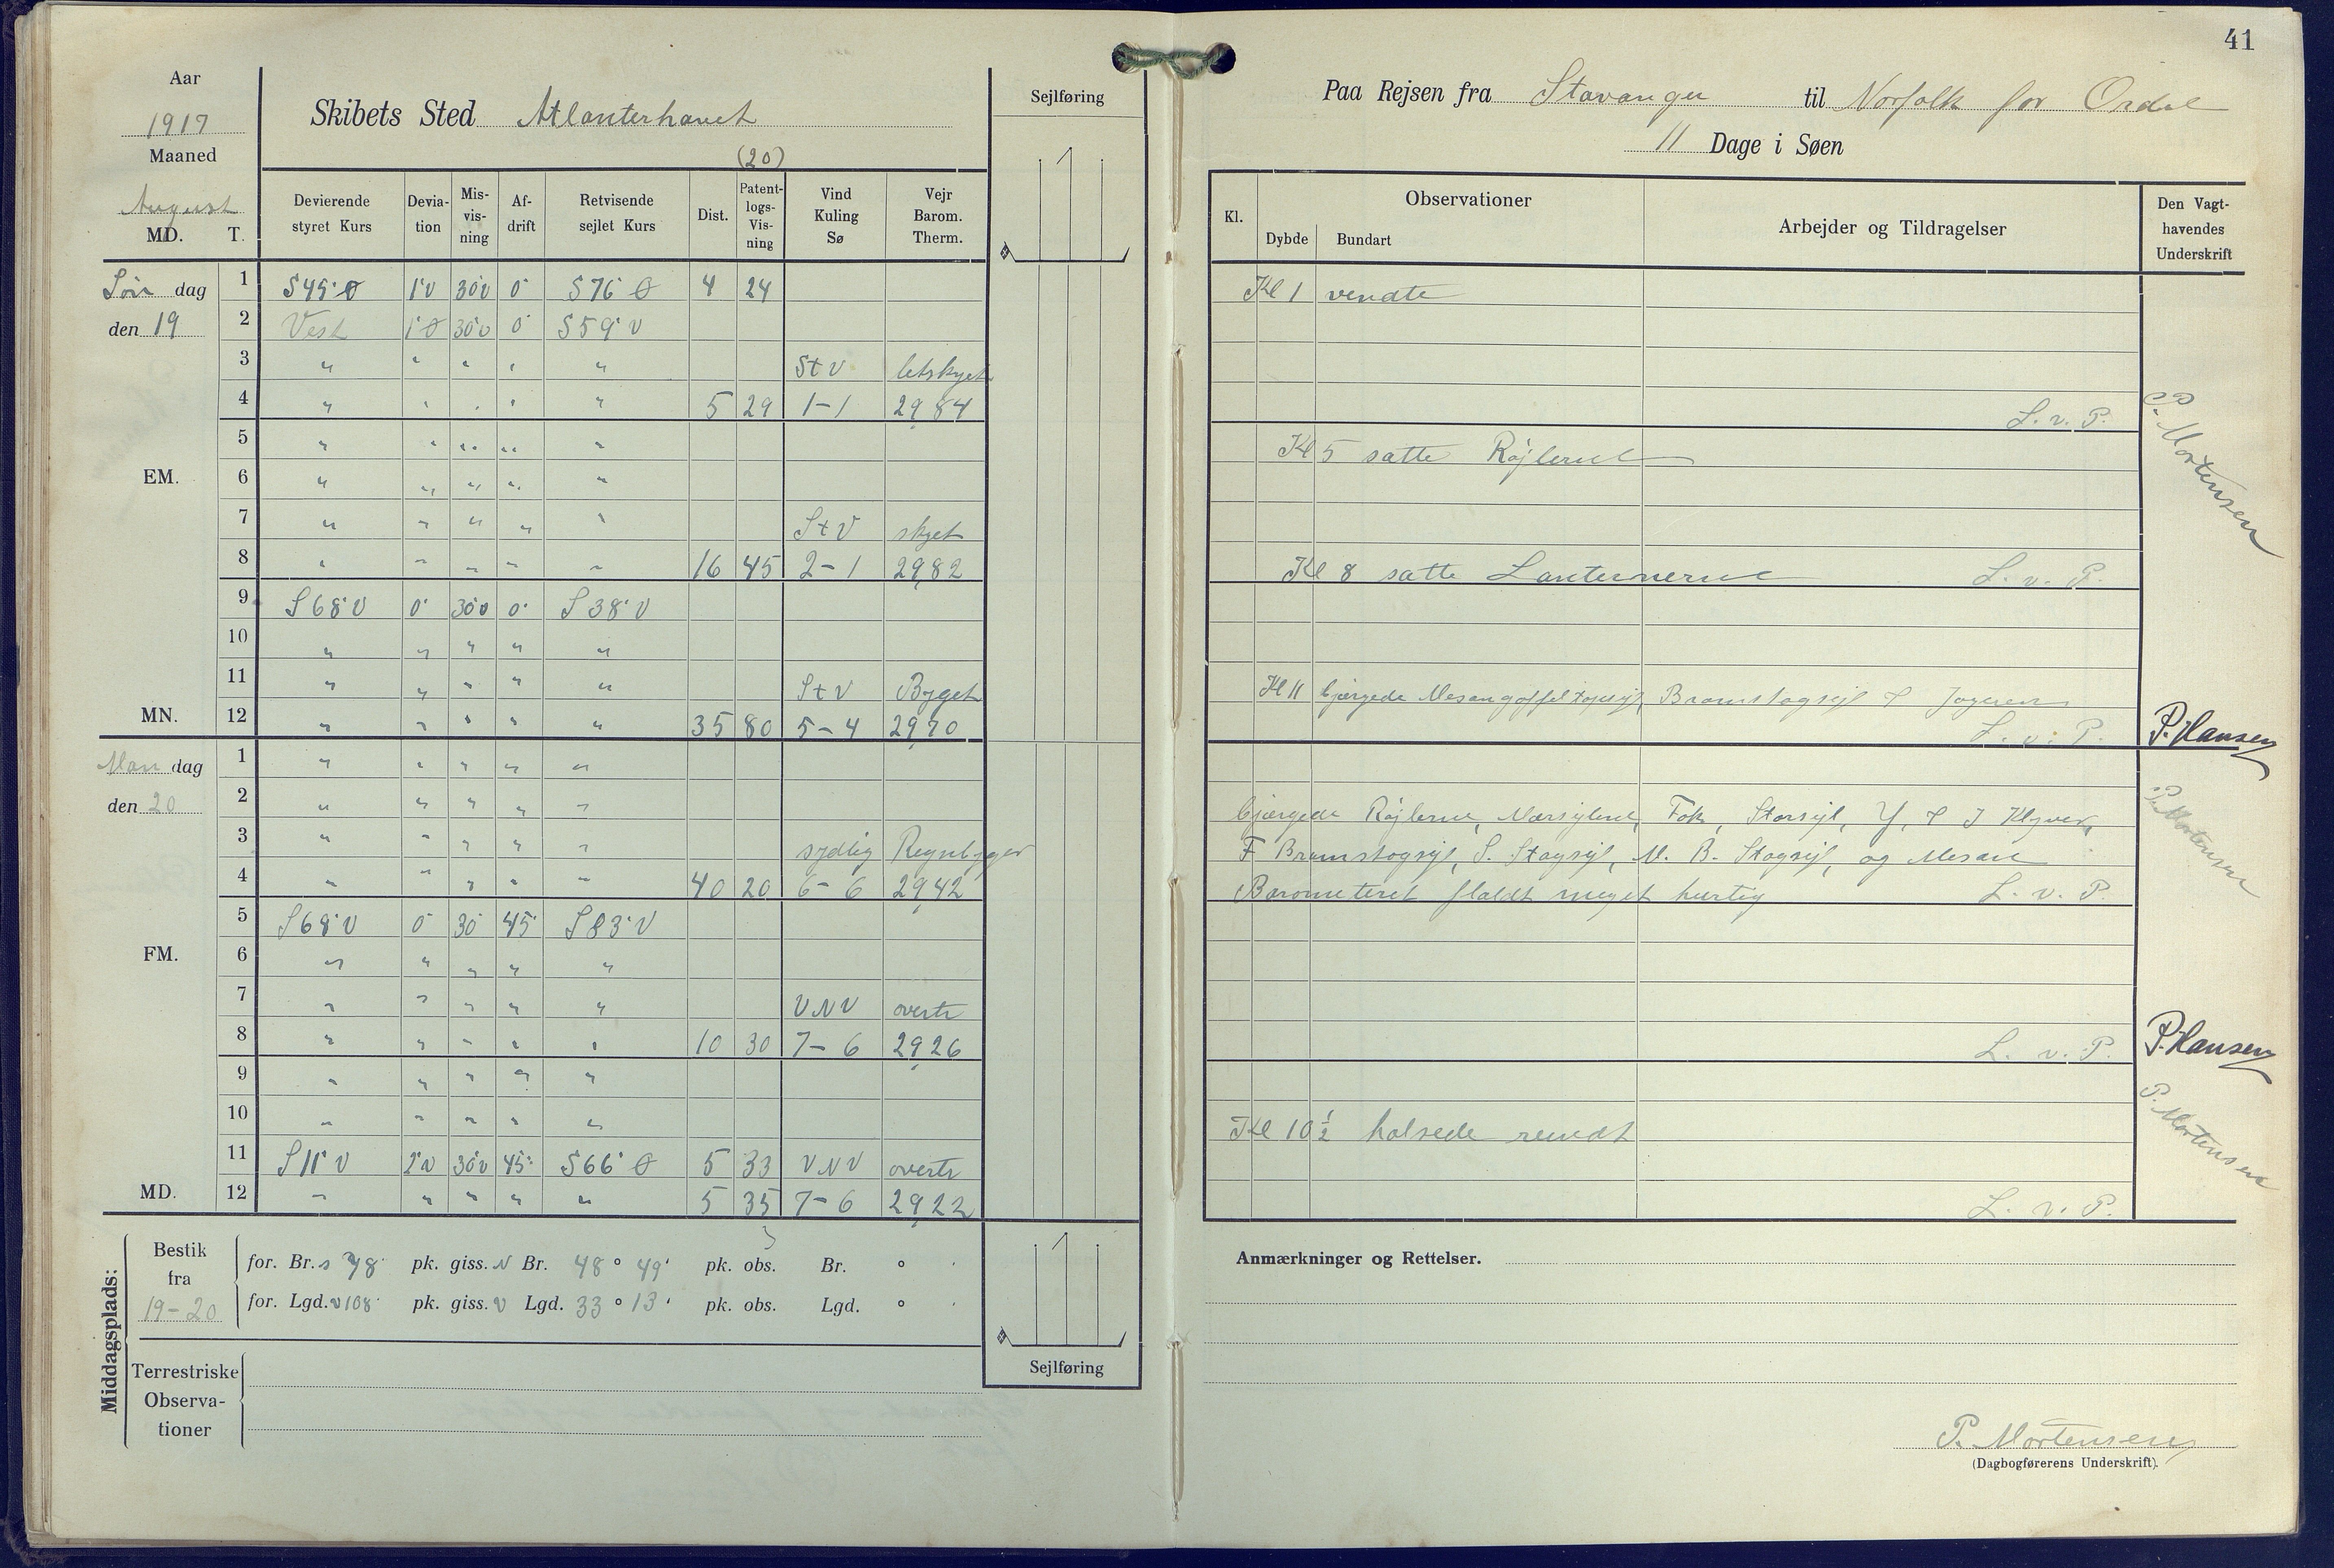 41
Aar
1917
Maaned
August
MD. T.
Skibets Sted Atlanterhavet
(20)
Sejlføring
Devierende styret Kurs
Devia-tion
Mis-vis-ning
Af-drift
Retvisende sejlet Kurs
Dist.
Patent-logs-Vis-ning
Vind Kuling Sø
Vejr Barom. Therm.
Søn dag
den 19
1 S 45° Ø 1° V 30 V 0° S 76° Ø 4 24
2 Vest 1° Ø 30° V 0° S 59° V
3 " " " " " S t V letskyet
4 " " " " " 5 29 1-1 29,84
5 " " " " "
EM.
6 " " " " "
7 " " " " " S t V skyet
8 " " " " " 16 45 2-1 29,82
9 S 68° V 0° 30° V 0° S 38° V
10 " " " " "
11 " " " " " S t V Byget
MN. 12 " " " " " 35 80 5-4 29,70
Man dag
den 20
1 " " " " "
2 " " " " "
3 " " " " " sydlig Regnbyger
4 " " " " " 40 20 6-6 29,42
5 S 68° V 0° 30° 45° S 83° V
FM.
6 " " " " "
7 " " " " " V N V overtr
8 " " " " " 10 30 7-6 29,26
9 " " " " "
10 " " " " "
11 S 11° V 2° V 30° V 45° S 66° Ø 5 33 V N V overtr
MD. 12 " " " " " 5 35 7-6 29,22
Middagsplads:
Bestik fra 19-20
for. Br. S 78' pk. giss. N Br. 48° 49' pk. obs. Br. ° '
for. Lgd. V 108' pk. giss. V Lgd. 33° 13' pk. obs. Lgd. ° '
Sejlføring
Terrestriske Observa-tioner
Paa Rejsen fra Stavanger til Norfolk for Ordre
11 Dage i Søen
Kl.
Observationer
Dybde Bundart
Arbejder og Tildragelser
Den Vagt-havendes Underskrift
Kl 1 vendte
L. v. P.
P. Mortensen
Kl 5 satte Røjlerne
Kl 8 satte Lanternerne L. v. P.
Kl 11 bjærgede Mesangaffeltopsejl, Bramstagsejl & Jageren
L. v. P. P. Hansen
bjærgede Røjlerne, Mærsejlene, Fok, Storsejl, Y. & I Klyver,
F Bramstagsejl, S. Stagsejl, M. B. Stagsejl, og Mesan
P. Mortensen
Barometeret flaldt meget hurtig L. v. P.
L. v. P. P. Hansen
Kl 10 ½ halsede rundt
P. Mortensen
L. v. P.
Anmærkninger og Rettelser.
P. Mortensen
(Dagbogførerens Underskrift).